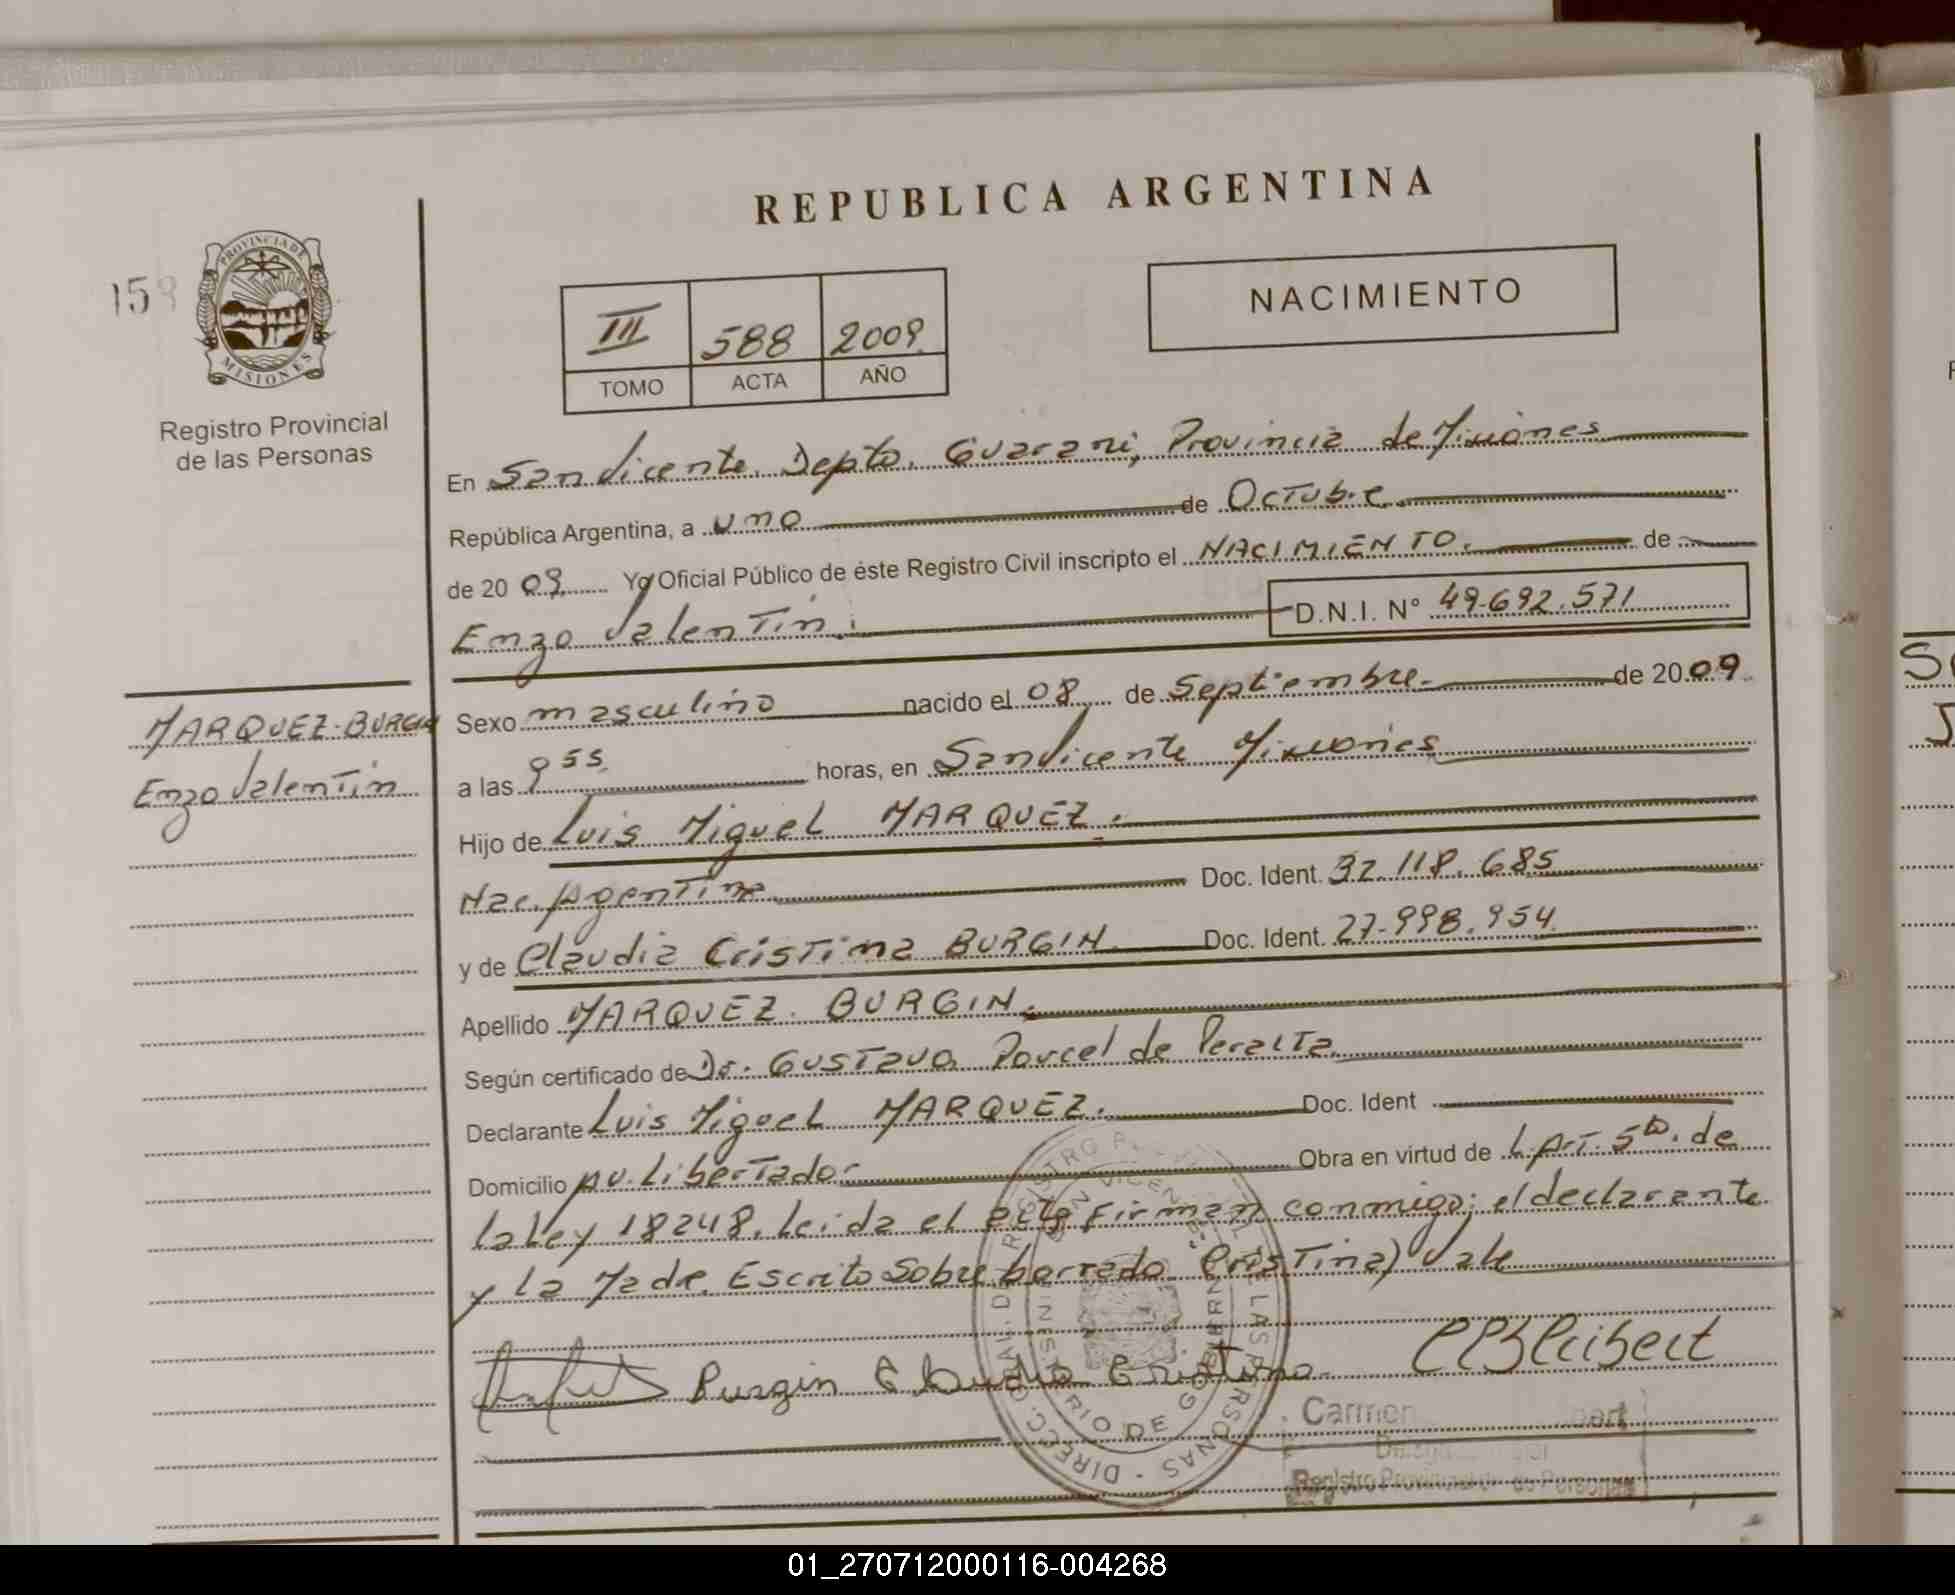 REPUBLICA ARGENTINA
PROVINCIA DE
MISIONES
15
Registro Provincial
de las Personas
III 588 2009
TOMO ACTA AÑO
NACIMIENTO
En San Vicente. Depto. Guarani, Provincia de Misiones
República Argentina, a uno de Octubre
de 2009 Yo Oficial Público de éste Registro Civil inscripto el NACIMIENTO. de
Enzo Valentin. D.N.I. N° 49.692.571
MARQUEZ-BURGIN
Enzo Valentin
Sexo masculino nacido el 08 de Septiembre. de 2009
a las 9 55 horas, en San Vicente Misiones
Hijo de Luis Miguel MARQUEZ.
Nac. Agentina Doc. Ident. 32.118.685
y de Claudia Cristina BURGIN Doc. Ident. 27.998.954
Apellido MARQUEZ. BURGIN.
Según certificado de Dr. Gustavo Porcel de Peralta
Declarante Luis Miguel MARQUEZ. Doc. Ident
Domicilio Av. Libertador Obra en virtud de L. Art. 5to. de
la Ley 18248. Leida el acta firman conmigo; el declarante
y la Madre. Escrito sobre borrado. Cristina) Vale
Burgin Claudia Cristina
Carmen
Registro Provincial de las Personas
DIRECC. GRAL. DEL REGISTRO
DE LAS PERSONAS
SAN VICENTE
MINISTERIO DE GOBIERNO
01_270712000116-004268